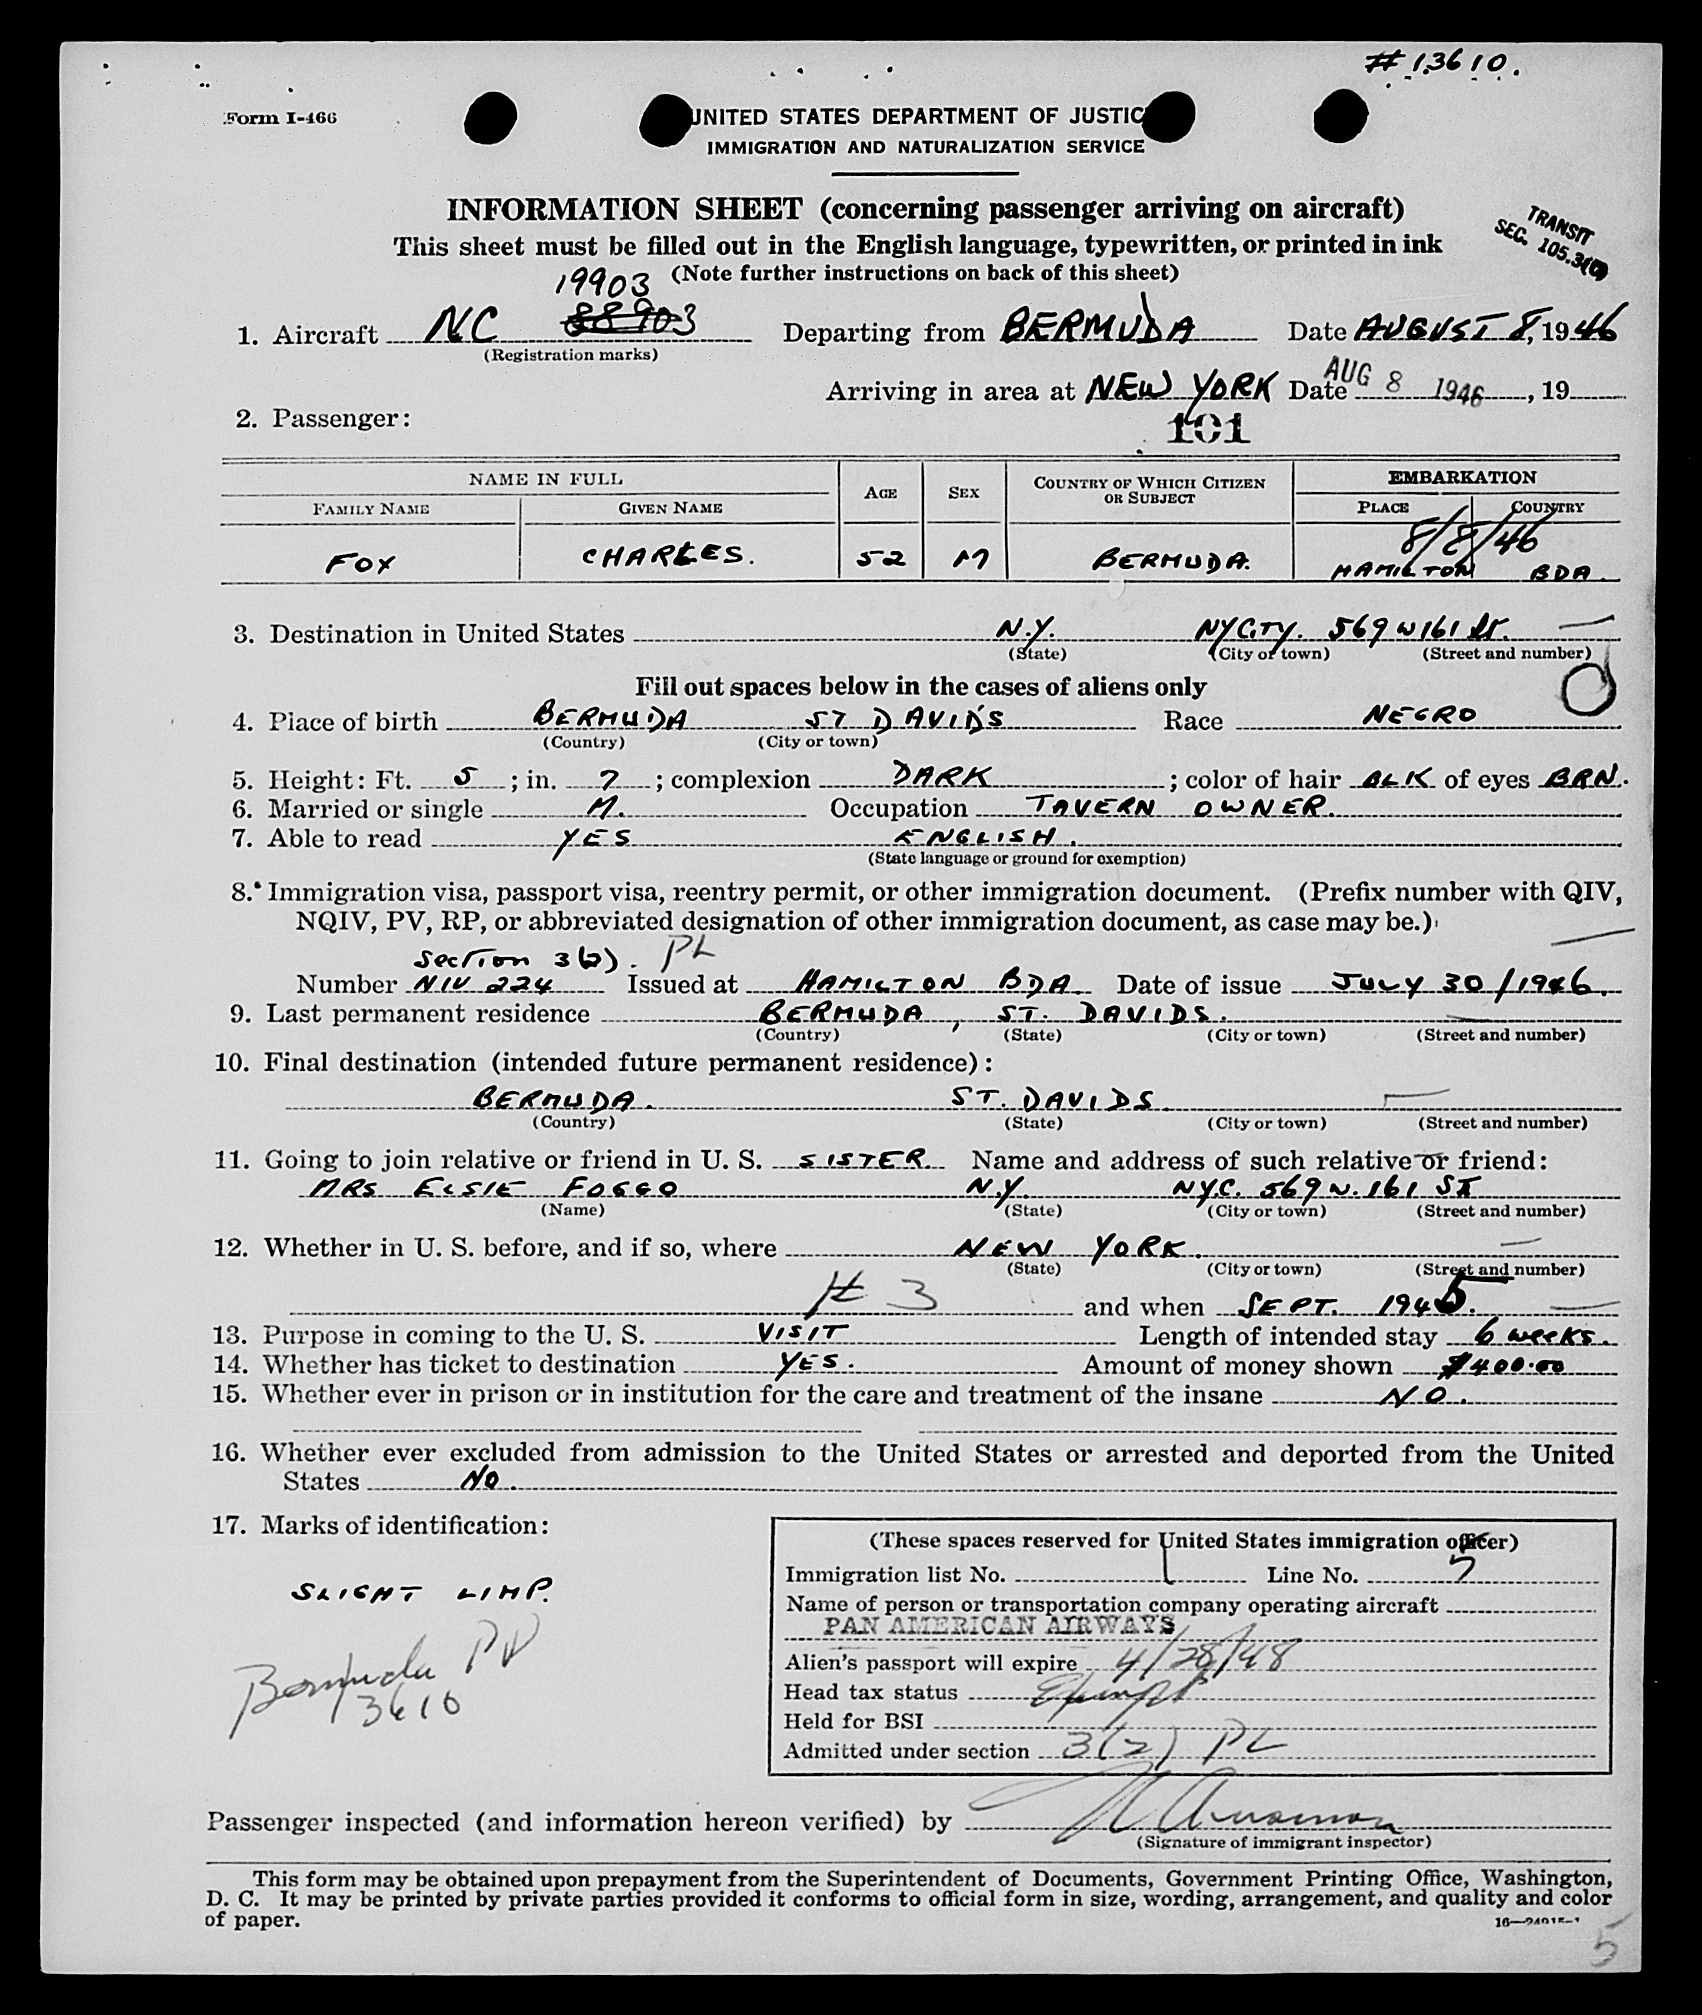 # 13610.
Form I-466
UNITED STATES DEPARTMENT OF JUSTIC
IMMIGRATION AND NATURALIZATION SERVICE
INFORMATION SHEET (concerning passenger arriving on aircraft)
TRANSIT
SEC. 105.3(
This sheet must be filled out in the English language, typewritten, or printed in ink
(Note further instructions on back of this sheet)
19903
1. Aircraft NC 88903 Departing from BERMUDA Date AUGUST 8, 1946
(Registration marks)
Arriving in area at NEW YORK Date AUG 8 1946, 19
2. Passenger:
101
NAME IN FULL AGE SEX COUNTRY OF WHICH CITIZEN OR SUBJECT EMBARKATION
FAMILY NAME GIVEN NAME PLACE COUNTRY
8/8/46
FOX CHARLES. 52 M BERMUDA. HAMILTON BDA.
3. Destination in United States N.Y. NYCITY. 569 W 161 St.
(State) (City or town) (Street and number)
Fill out spaces below in the cases of aliens only
4. Place of birth BERMUDA ST DAVID'S Race NEGRO
(Country) (City or town)
5. Height: Ft. 5; in. 7; complexion DARK; color of hair BLK of eyes BRN.
6. Married or single M. Occupation TAVERN OWNER.
7. Able to read YES ENGLISH.
(State language or ground for exemption)
8. Immigration visa, passport visa, reentry permit, or other immigration document. (Prefix number with QIV,
NQIV, PV, RP, or abbreviated designation of other immigration document, as case may be.)
Section 3(2). PL
Number NIV 224 Issued at HAMILTON BDA Date of issue JULY 30/1946.
9. Last permanent residence BERMUDA, ST. DAVIDS.
(Country) (State) (City or town) (Street and number)
10. Final destination (intended future permanent residence):
BERMUDA. ST. DAVIDS.
(Country) (State) (City or town) (Street and number)
11. Going to join relative or friend in U. S. SISTER Name and address of such relative or friend:
MRS ELSIE FOGGO N.Y. NY.C. 569 W. 161 ST
(Name) (State) (City or town) (Street and number)
12. Whether in U. S. before, and if so, where NEW YORK.
(State) (City or town) (Street and number)
3 and when SEPT. 1945.
13. Purpose in coming to the U. S. VISIT Length of intended stay 6 weeks.
14. Whether has ticket to destination YES. Amount of money shown $400.00
15. Whether ever in prison or in institution for the care and treatment of the insane NO.
16. Whether ever excluded from admission to the United States or arrested and deported from the United
States NO.
17. Marks of identification:
SLIGHT LIMP.
Bermuda PP
13610
(These spaces reserved for United States immigration officer)
Immigration list No. 1 Line No. 7
Name of person or transportation company operating aircraft
PAN AMERICAN AIRWAYS
Alien's passport will expire 4/28/48
Head tax status Exempt
Held for BSI
Admitted under section 3(2) PL
Passenger inspected (and information hereon verified) by
(Signature of immigrant inspector)
This form may be obtained upon prepayment from the Superintendent of Documents, Government Printing Office, Washington,
D. C. It may be printed by private parties provided it conforms to official form in size, wording, arrangement, and quality and color
of paper.
5